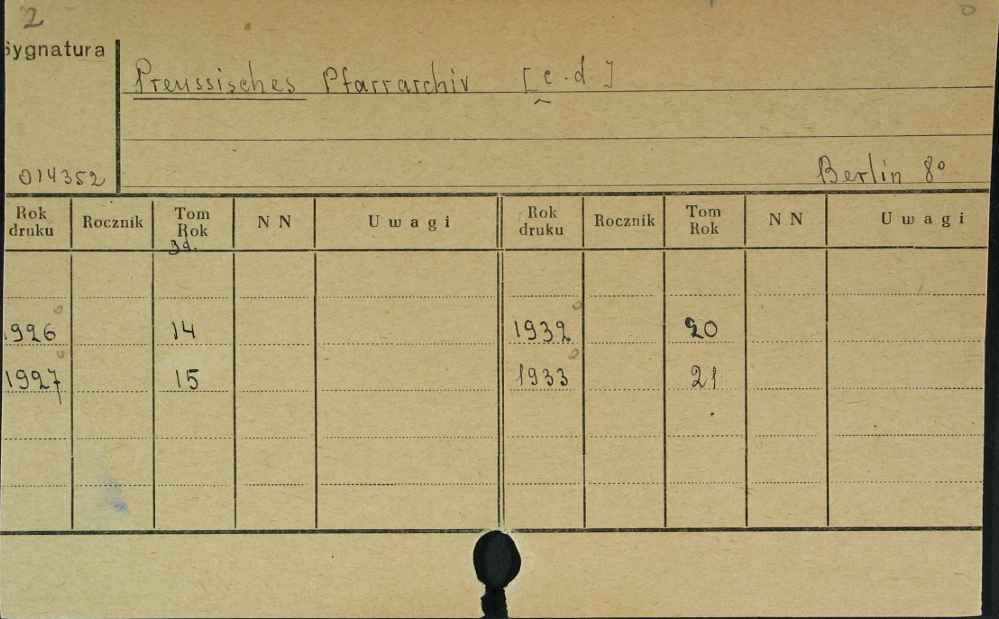 2
Sygnatura
Preussisches Pfarrarchiv [c.d]
014352
Berlin 8°
Rok druku Rocznik Tom Rok NN Uwagi Rok druku Rocznik Tom Rok NN Uwagi
Bd.
1926 14 1932 20
1927 15 1933 21